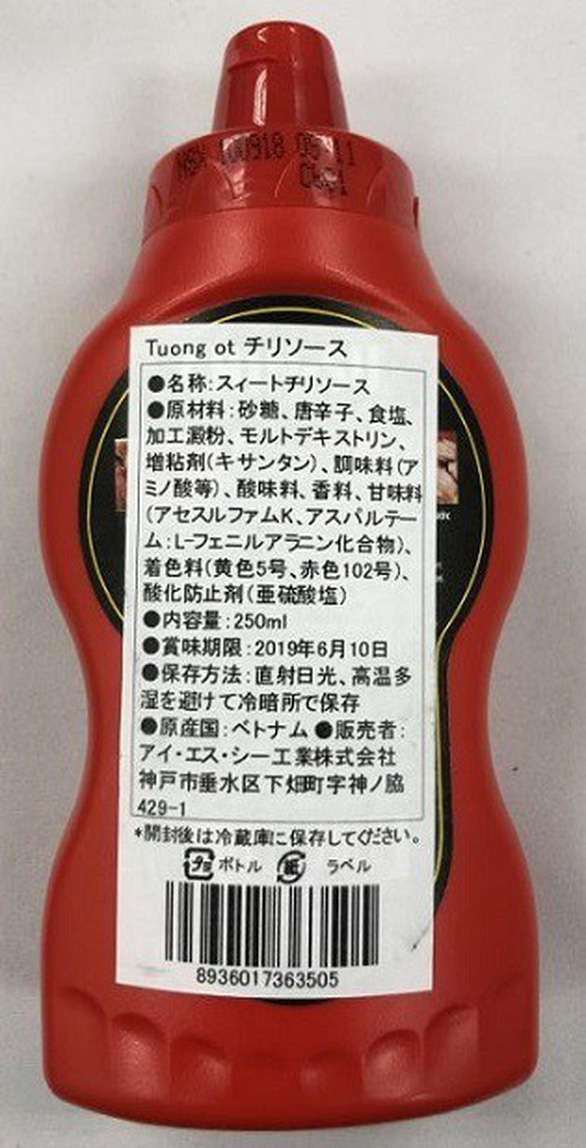 100918
Tuong ot チリソース
●名称:スィートチリソース
●原材料:砂糖、唐辛子、食塩、
加工澱粉、モルトデキストリン、
増粘剤(キサンタン)、調味料(ア
ミノ酸等)、酸味料、香料、甘味料
(アセスルファムK、アスパルテー
ム:L-フェニルアラニン化合物)、
着色料(黄色5号、赤色102号)、
酸化防止剤(亜硫酸塩)
●内容量:250ml
●賞味期限:2019年6月10日
●保存方法:直射日光、高温多
湿を避けて冷暗所で保存
●原産国:ベトナム ●販売者:
アイ・エス・シー工業株式会社
神戸市垂水区下畑町字神ノ脇
429-1
*開封後は冷蔵庫に保存してください。
プラ ボトル 紙 ラベル
8936017363505